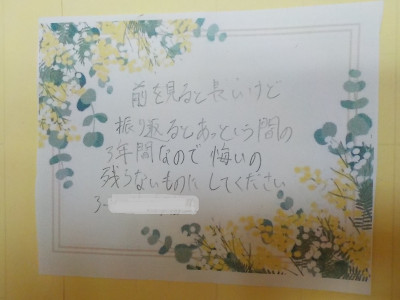 前を見ると長いけど
振り返るとあっという間の
3年間なので悔いの
残らないものにしてください
3-